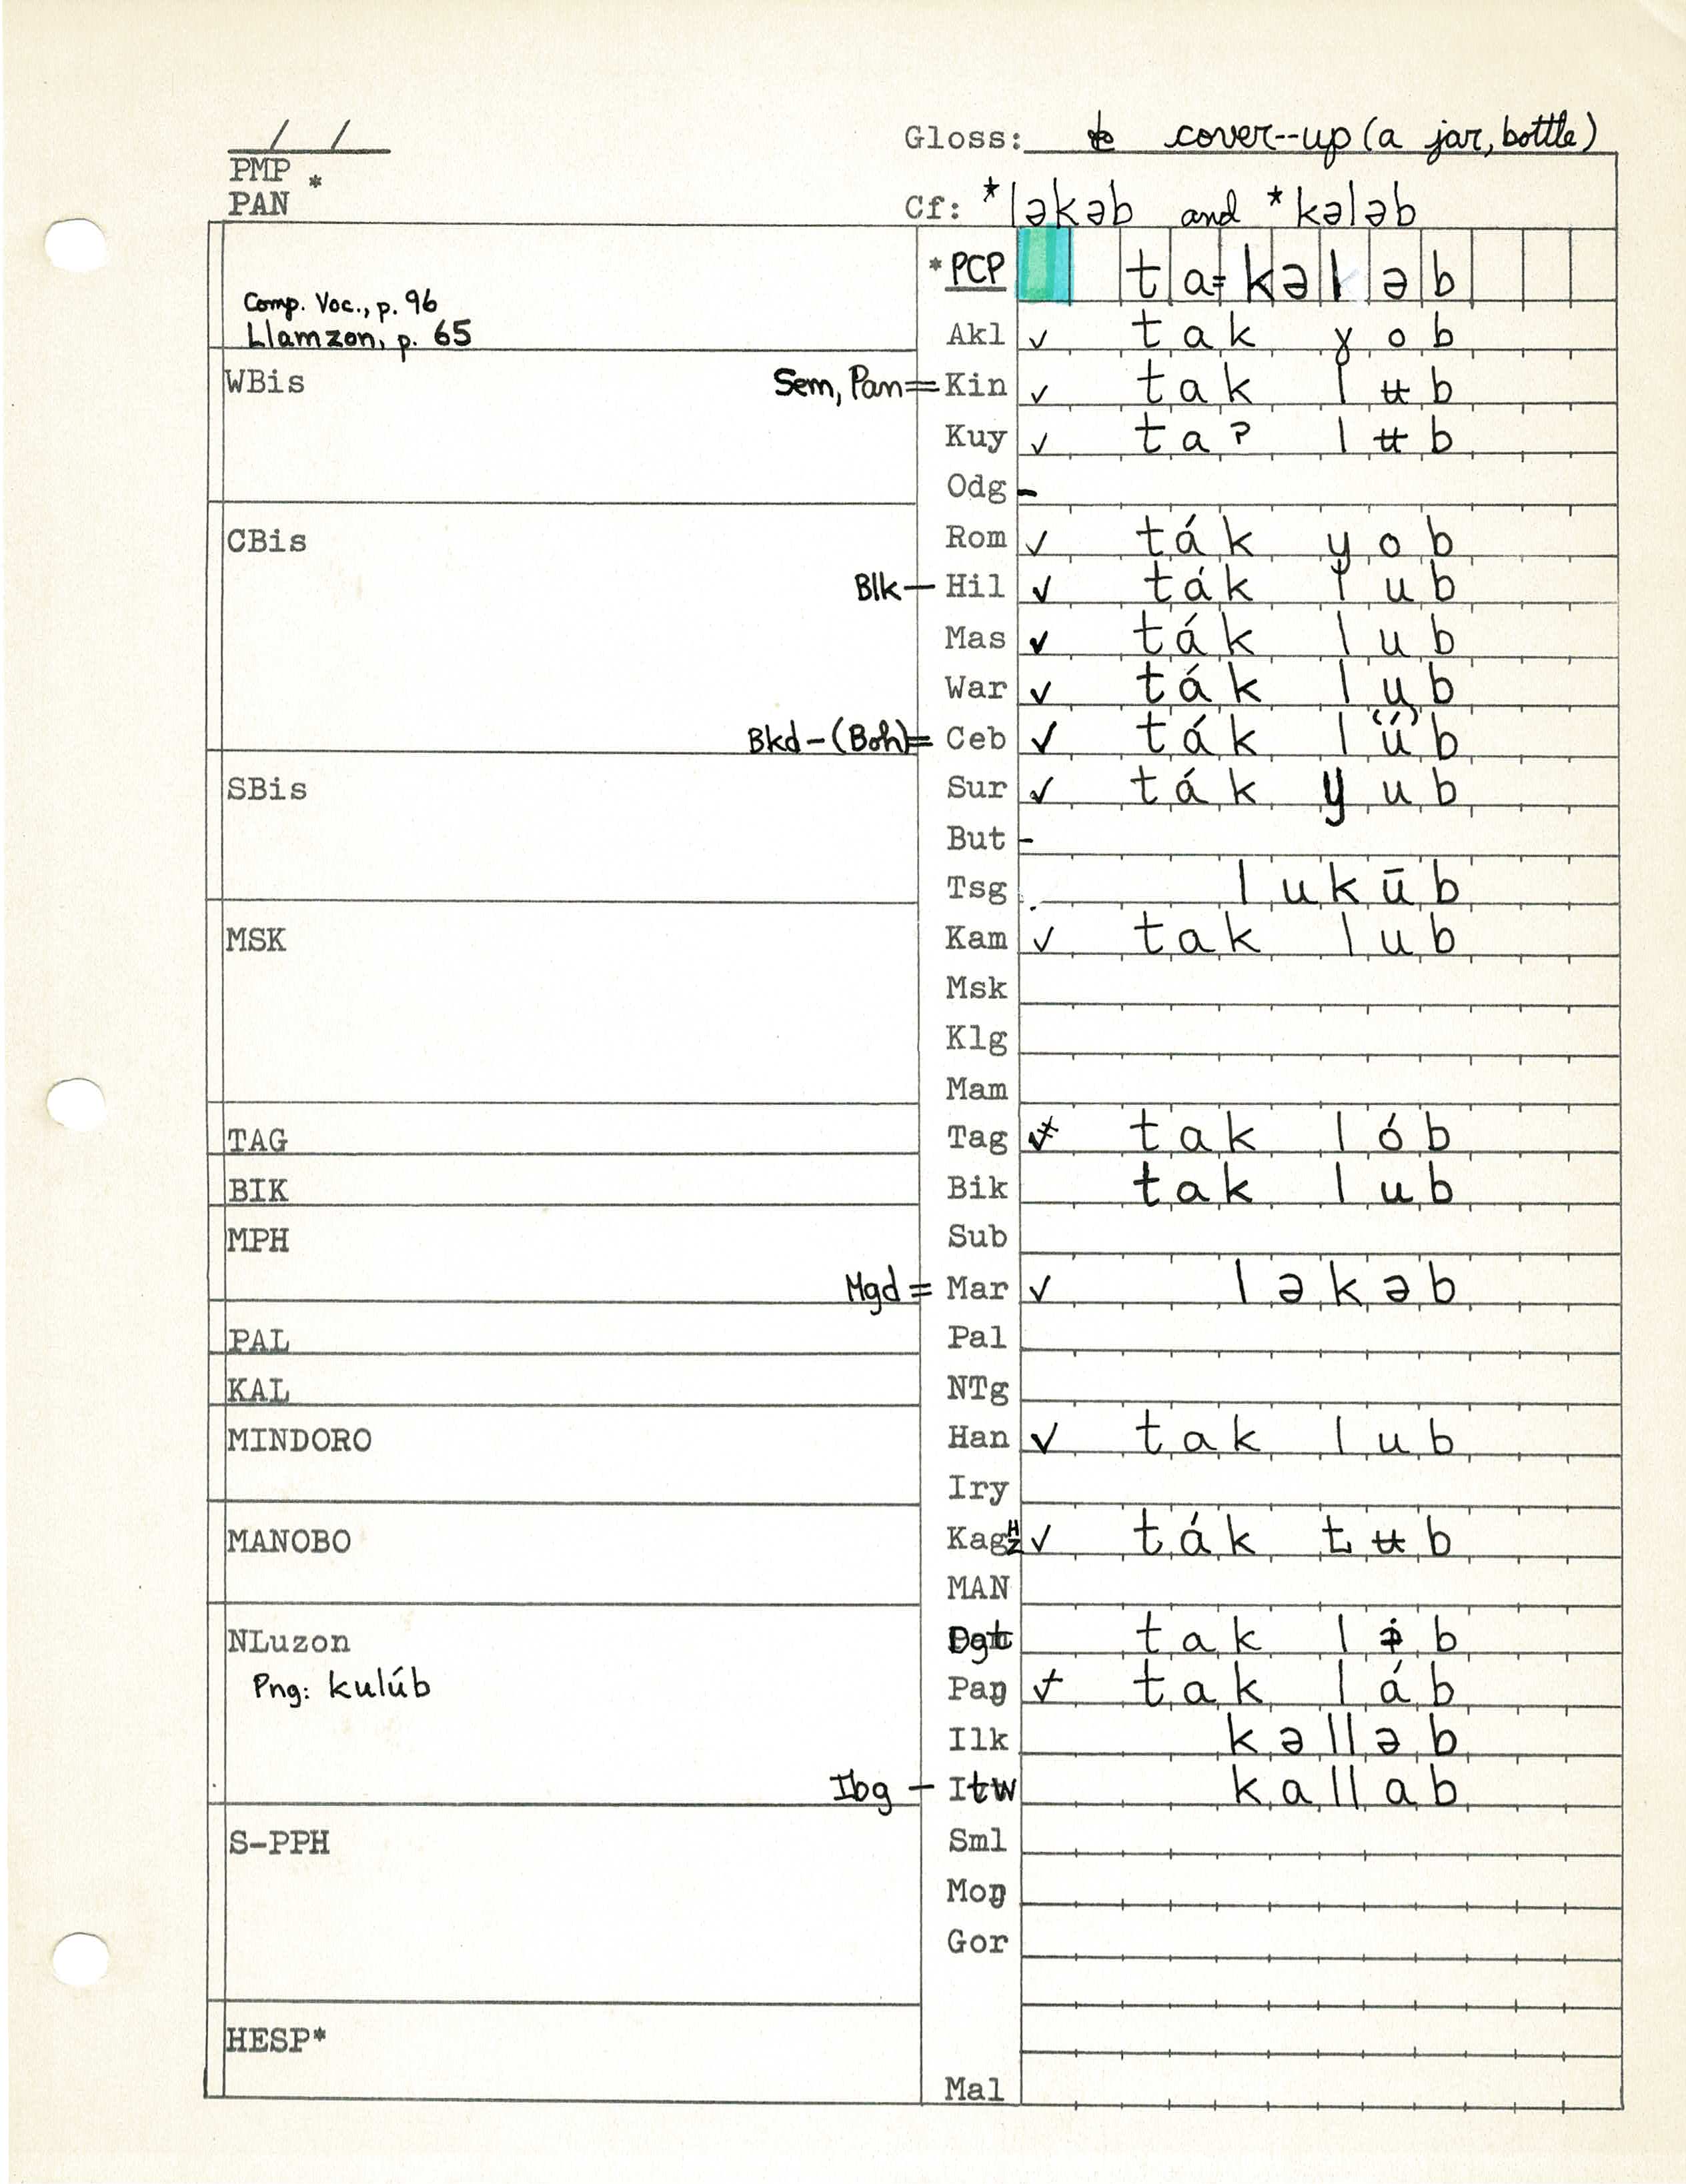 / /
Gloss: cover--up (a jar, bottle)
PMP *
PAN
Cf: *ləkəb and *kələb
*PCP ta=kələb
Comp. Voc., p. 96
Llamzon, p. 65
Akl ✓ tak ɣob
WBis Sem, Pan= Kin ✓ tak lʉb
Kuy ✓ taʔ lʉb
Odg -
CBis Rom ✓ ták yob
Blk- Hil ✓ ták lub
Mas ✓ ták lub
War ✓ ták lub
Bkd-(Boh)= Ceb ✓ ták l(ú)b
SBis Sur ✓ ták yub
But -
Tsg lukūb
MSK Kam ✓ tak lub
Msk
Klg
Mam
TAG Tag ✓ tak lób
BIK Bik tak lub
MPH Sub
Mgd = Mar ✓ ləkəb
PAL Pal
KAL NTg
MINDORO Han ✓ tak lub
Iry
MANOBO Kag ✓ ták tʉb
MAN
NLuzon Dgt tak lɨb
Png: kulúb Paŋ ✓ tak láb
Ilk kəlləb
Ibg - Itw kallab
S-PPH Sml
Moŋ
Gor
HESP*
Mal